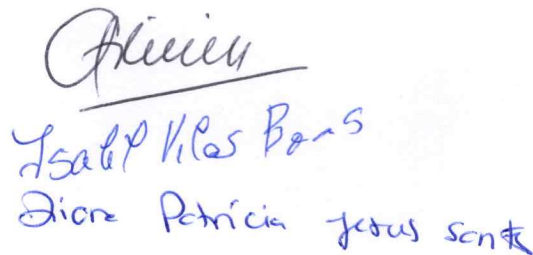 Isabel Vilas Boas
Diana Patrícia Jesus Santos